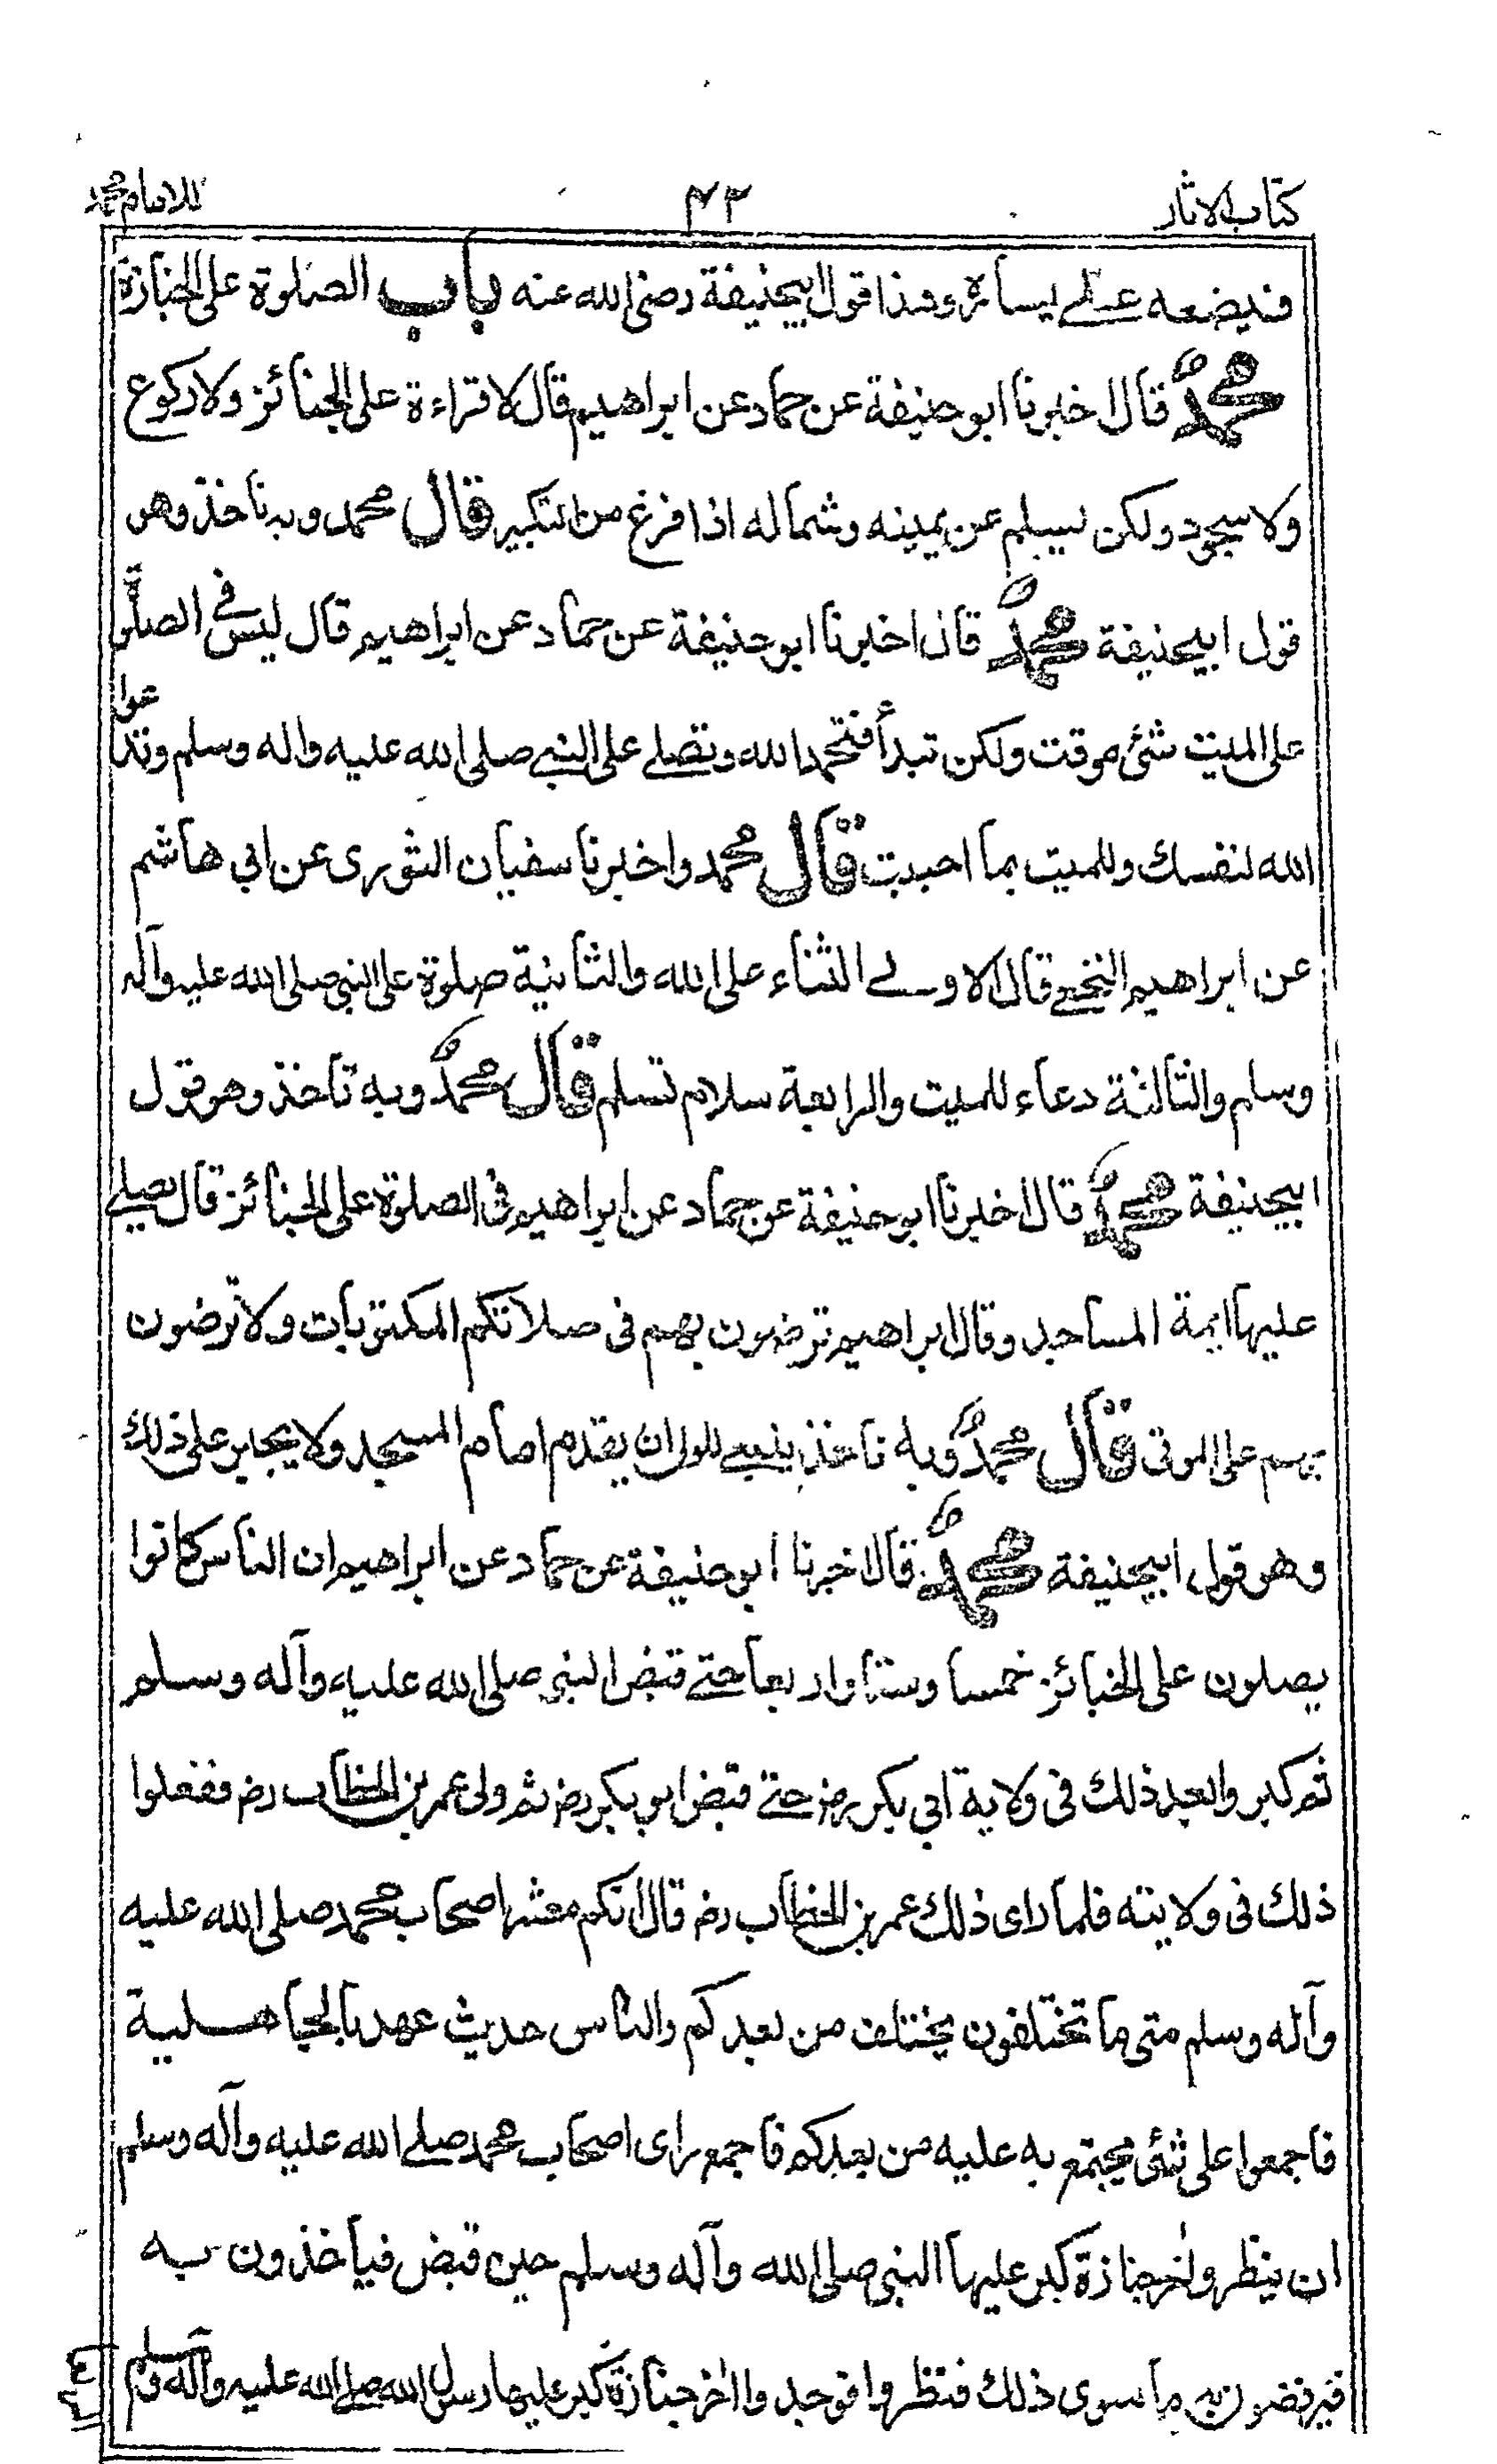 كتاب الاثار ٤٣ للامام محمد
فيضعه على يساره وهذا قول ابيحنيفة رضي الله عنه باب الصلوة على الجنازة
محمد قال اخبرنا ابو حنيفة عن حماد عن ابراهيم قال لا قراءة على الجنائز ولا ركوع
ولا سجود ولكن يسلم عن يمينه وشماله اذا فرغ من التكبير قال محمد وبه ناخذ وهو
قول ابيحنيفة محمد قال اخبرنا ابو حنيفة عن حماد عن ابراهيم قال ليس في الصلوة
على الميت شئ موقت ولكن تبدأ فتحمد الله وتصلي على النبي صلى الله عليه واله وسلم وتدعوا
الله لنفسك وللميت بما احببت قال محمد واخبرنا سفيان الثوري عن ابي هاشم
عن ابراهيم النخعي قال الاولى الثناء على الله والثانية صلوة على النبي صلى الله عليه وآله
وسلم والثالثة دعاء للميت والرابعة سلام تسلم قال محمد وبه ناخذ وهو قول
ابيحنيفة محمد قال اخبرنا ابو حنيفة عن حماد عن ابراهيم في الصلوة على الجنائز قال يصلي
عليها ايمة المساجد وقال ابراهيم ترضون بهم في صلاتكم المكتوبات ولا ترضون
بهم على الموتى قال محمد وبه ناخذ ينبغي للولي ان يقدم امام المسجد ولا يجبر على ذلك
وهو قول ابيحنيفة محمد قال اخبرنا ابو حنيفة عن حماد عن ابراهيم ان الناس كانوا
يصلون على الجنائز خمسا وستا واربعا حتى قبض النبي صلى الله عليه وآله وسلم
ثم كبروا بعد ذلك في ولاية ابي بكر رض حتى قبض ابو بكر رض ثم ولي عمر بن الخطاب رض ففعلوا
ذلك في ولايته فلما راى ذلك عمر بن الخطاب رض قال انكم معشر اصحاب محمد صلى الله عليه
وآله وسلم متى ما تختلفون يختلف من بعدكم والناس حديث عهد بالجاهلية
فاجمعوا على شئ يجتمع به عليه من بعدكم فاجمع راى اصحاب محمد صلى الله عليه وآله وسلم
ان ينظروا اخر جنازة كبر عليها النبي صلى الله وآله وسلم حين قبض فياخذون به
فيرفضون به ما سوى ذلك فنظروا فوجدوا اخر جنازة كبر عليها رسول الله صلى الله عليه وآله وسلم